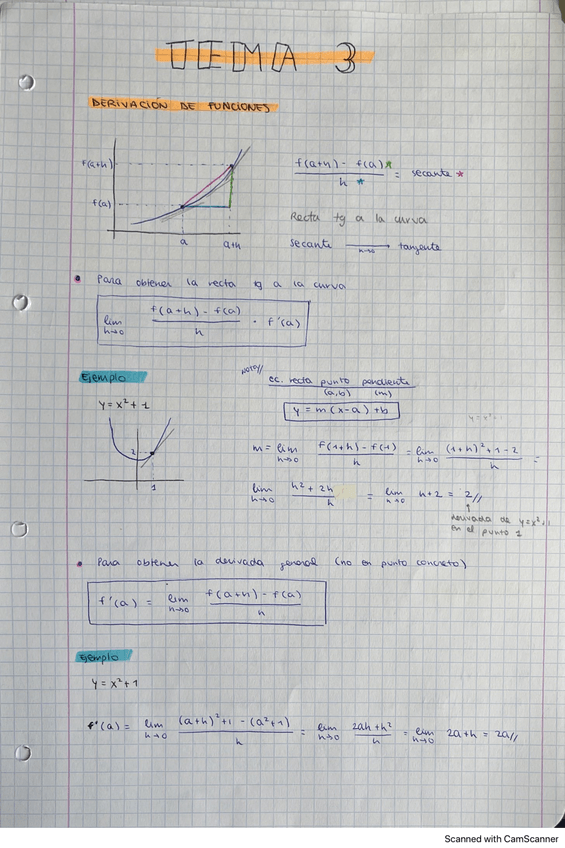 TEMA 3
DERIVACIÓN DE FUNCIONES
f(a+h)
f(a)
a a+h
f(a+h) - f(a)* / h * = secante *
Recta tg a la curva
secante →h→0 tangente
• Para obtener la recta tg a la curva
lim h→0 f(a+h) - f(a) / h · f'(a)
Ejemplo
y = x² + 1
2
1
NOTA//
ec. recta punto pendiente
(a,b) (m)
y = m(x-a) + b
y = x²+1
m = lim h→0 f(1+h) - f(1) / h = lim h→0 (1+h)² + 1 - 2 / h =
lim h→0 h² + 2h / h = lim h→0 h + 2 = 2//
↑
derivada de y=x²+1
en el punto 1
• Para obtener la derivada general (no en punto concreto)
f'(a) = lim h→0 f(a+h) - f(a) / h
Ejemplo
y = x² + 1
f'(a) = lim h→0 (a+h)² + 1 - (a²+1) / h = lim h→0 2ah + h² / h = lim h→0 2a + h = 2a//
Scanned with CamScanner